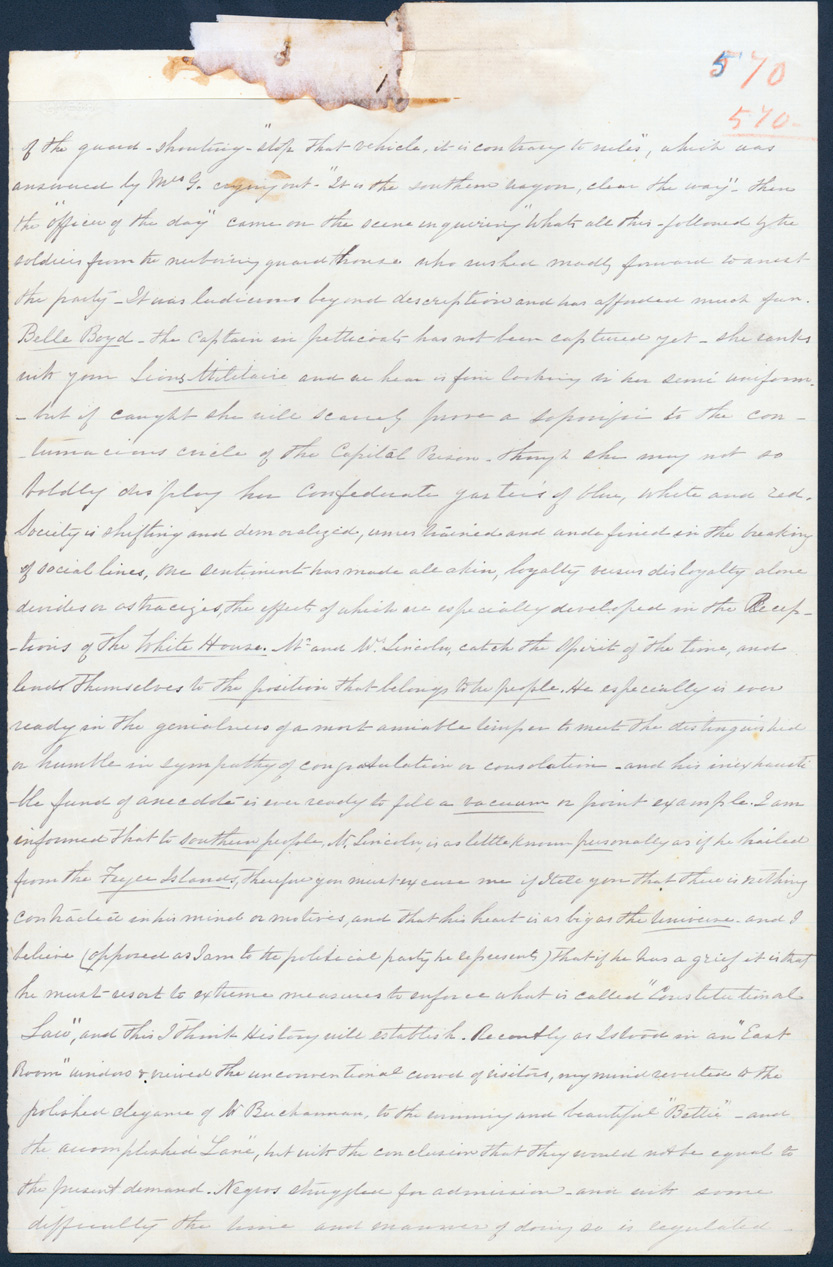 570
570-
of the guard - shouting - "stop that vehicle, it is contrary to rules", which was
answered by Mrs G. crying out - "It is the southern wagon, clear the way" - then
the "officer of the day" came on the scene enquiring "Whats all this - followed by the
soldiers from the neiboring guard house who rushed madly forward to arrest
the party - It was ludicrous beyond description and has afforded much fun.
Belle Boyd - the Captain in petticoats has not been captured yet - she ranks
with your Lions Militaire and we hear is fine looking in her semi uniform -
- but if caught she will scarcely prove a soporific to the con-
-tumacious circle of the Capital Prison - though she may not so
boldly display her Confederate garters of blue, white and red.
Society is shifting and demoralized, unrestrained and undefined in the breaking
of social lines, one sentiment has made all akin, loyalty versus disloyalty alone
divides or ostracizes, the effects of which are especially developed in the Recep-
-tions of the White House. Mr and Mrs Lincoln, catch the spirit of the time, and
lend themselves to the position that belongs to the people. He especially is ever
ready in the genialness of a most amiable temper to meet the distinguished
or humble in sympathy of congratulation or consolation - and his inexhausti
-ble fund of anecdote is ever ready to fill a vacuum or point example. I am
informed that to southern people, Mr Lincoln, is as little known personally as if he hailed
from the Fegee Islands, therefore you must excuse me if I tell you that there is nothing
contracted in his mind or motives, and that his heart is as big as the Universe - and I
believe (opposed as I am to the political party he represents) that if he has a grief it is that
he must resort to extreme measures to enforce what is called "Constitutional
Law", and this I think History will establish. Recently as I stood in an "East
Room" window & viewed the unconventional crowd of visitors, my mind reverted to the
polished elegance of Mr Buchannan, to the winning and beautiful "Bettie" - and
the accomplished "Lane", but with the conclusion that they would not be equal to
the present demand. Negros struggled for admission - and with some
difficulty the time and manner of doing so is regulated -